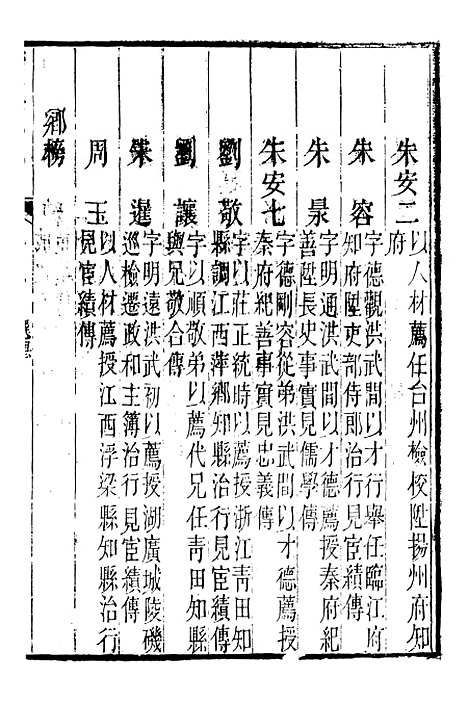 朱安二
以人材薦任台州檢校陞揚州府知
府
朱容
字德觀洪武間以才行舉任臨江府
知府陞吏部侍郎治行見宦績傳
朱景
字明通洪武間以才德薦授秦府紀
善陞長史事實見儒學傳
朱安七
字德剛容從弟洪武間以才德薦授
秦府紀善事實見忠義傳
劉敬
字以莊正統時以薦授浙江青田知
縣調江西萍鄉知縣治行見宦績傳
劉讓
字以順敬弟以薦代兄任青田知縣
與兄敬合傳
朱暹
字明遠洪武初以薦授湖廣城陵磯
巡檢遷政和主簿治行見宦績傳
周玉
以人材薦授江西浮梁縣知縣治行
見宦績傳
鄉榜